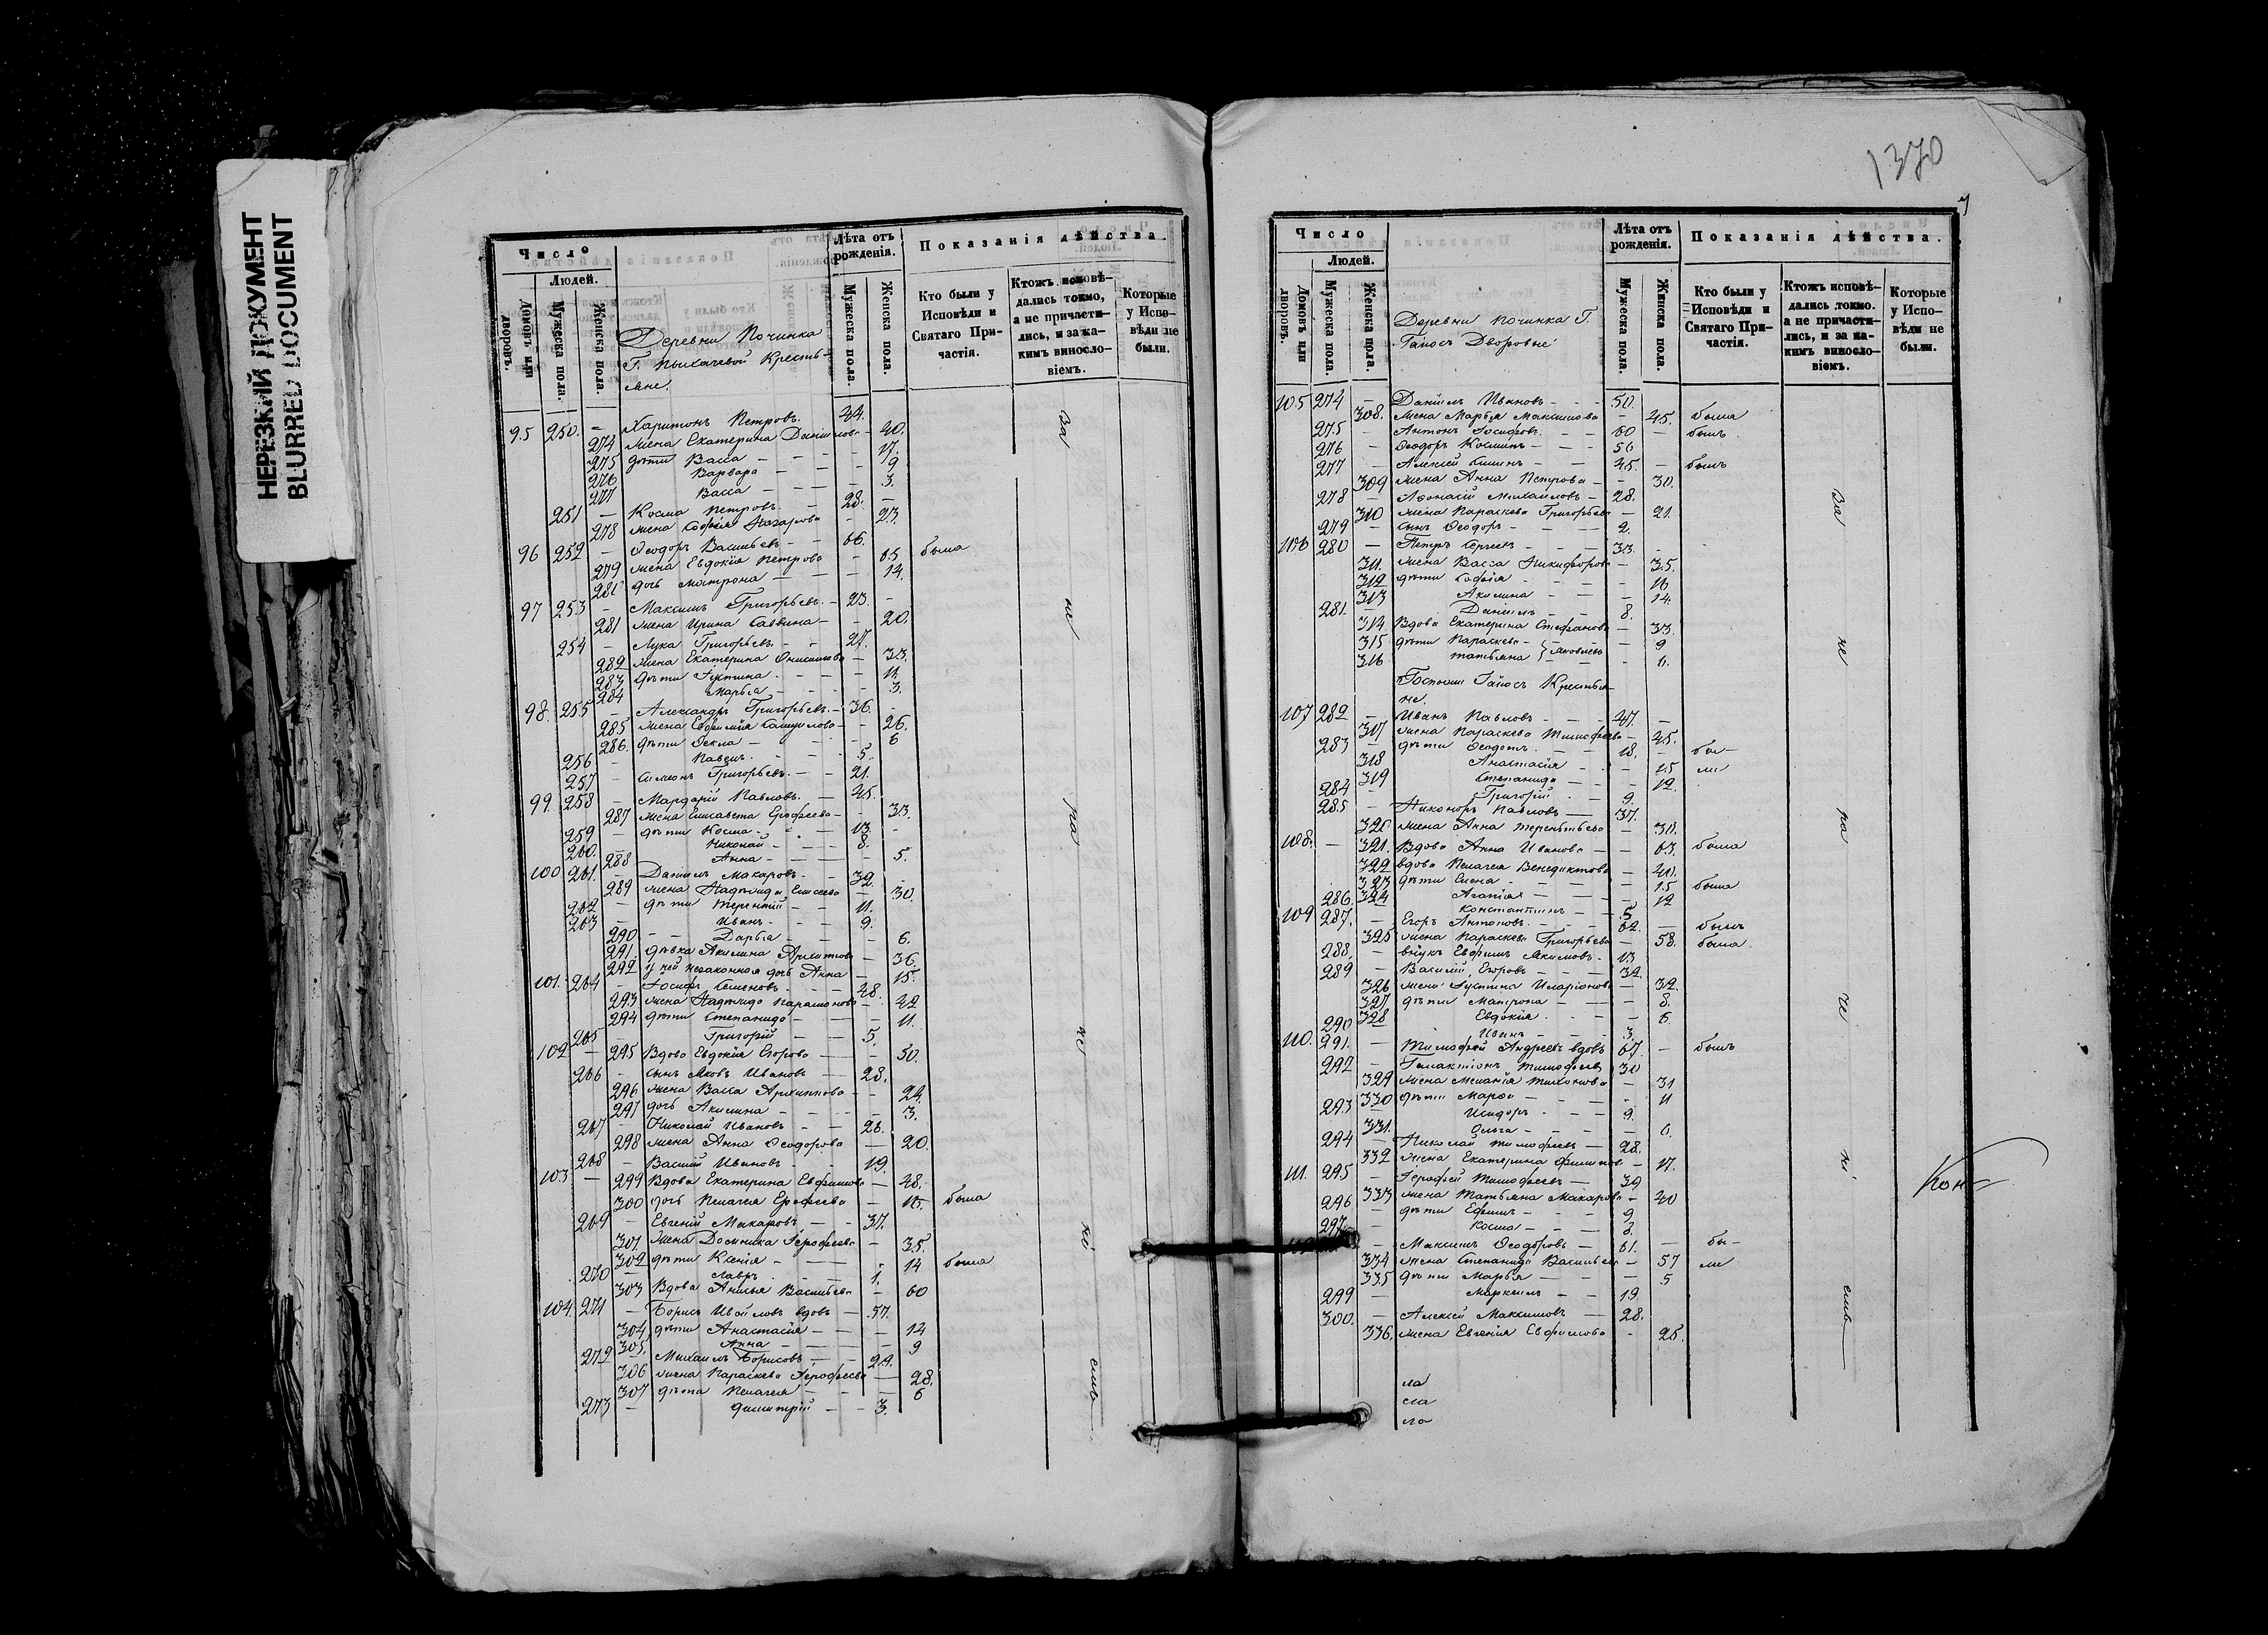 НЕРЕЗКИЙ ДОКУМЕНТ
BLURRED DOCUMENT
Число
Людей.
Домовъ или дворовъ.
Мужеска пола.
Женска пола.
Лѣта отъ рожденія.
Мужеска пола.
Женска пола.
Показанія дѣйства.
Кто были у Исповѣди и Святаго Причастія.
Ктожъ исповѣдались токмо, а не причастились, и за какимъ винословіемъ.
Которые у Исповѣди не были.
Деревни Починка
Г. Крестьяне.
95 250. — Харитонъ Петровъ. 44.
274 жена Екатерина Даніилова — 40.
275 дѣти Васса — 17.
276 Варвара — 9
277 Васса — 3.
251 — Косма Петровъ — 28.
278 жена Софія Назарова — 23.
96 252 — Ѳеодоръ Васильевъ — 66.
279 жена Евдокія Петрова — 65 была
280 дочь Матрона — 14.
97 253 — Максимъ Григорьевъ — 23.
281 жена Ирина Саввина — 20.
254 — Лука Григорьевъ — 27.
282 жена Екатерина Онисимова — 33.
283 дѣти Іустина — 11
284 Марья — 3.
98. 255 — Александръ Григорьевъ — 36.
285 жена Евфимія Самуилова — 26.
286. дѣти Ѳекла — 6
256 — Павелъ — 5.
257 — Симеонъ Григорьевъ — 21.
99. 258 — Мардарій Павловъ — 45.
287 жена Елисавета Ерофеева — 33.
259 — дѣти Косма — 13.
260. — Николай — 8.
288 Анна — 5.
100 261 — Даніилъ Макаровъ — 32.
289 жена Надежда Елисеева — 30.
262 — дѣти Терентій — 11.
263 — Иванъ — 9.
290 — Дарья — 6.
291. дѣвка Акилина — 36.
292 у ней незаконная дочь Анна — 15.
101. 264 — Іосифъ Семеновъ — 48.
293 жена Надежда Парамонова — 42
294 дѣти Степанида — 11.
265 — Григорій — 5.
102 — 295 Вдова Евдокія Егорова — 50.
266 — сынъ Яковъ Ивановъ — 28.
296 жена Васса Архиппова — 24.
297 дочь Акилина — 3.
267 — Николай Ивановъ — 26.
298 жена Анна Ѳеодорова — 20.
268 — Василій Ивановъ — 19.
103 — 299 Вдова Екатерина Евфимова — 48.
300 дочь Пелагея Ерофеева — 16. была
269 — Евгеній Макаровъ — 37.
301. жена Домника Іерофеева — 35.
302 дѣти Ксенія — 14 была
270 — Лавръ — 1.
303 Вдова Васильева — 60
104. 271 — Борисъ вдовъ — 57.
304. дѣти Анастасія — 12
305. Анна — 9
272 — Михаилъ Борисовъ — 29.
306 жена Параскева Іерофеева — 28.
307 дѣти Пелагея — 6
273 — Димитрій — 3.
За не ра че ні емъ
1370
7
Число
Людей.
Домовъ или дворовъ.
Мужеска пола.
Женска пола.
Лѣта отъ рожденія.
Мужеска пола.
Женска пола.
Показанія дѣйства.
Кто были у Исповѣди и Святаго Причастія.
Ктожъ исповѣдались токмо, а не причастились, и за какимъ винословіемъ.
Которые у Исповѣди не были.
Деревни Починка Г.
Гаіосъ Дворовые
105 274 — Даніилъ Ивановъ — 50.
308. жена Марья Максимова — 45. была
275 — Антонъ Іосифовъ — 60 — былъ
276 — Ѳеодоръ Косминъ — 56
277 — Алексій — 45. — былъ
309 жена Анна Петрова — 30.
278 — Аѳонасій Михайловъ — 28.
310 жена Параскева Григорьева — 21.
279 — сынъ Ѳеодоръ — 2.
106 280 — Петръ — 33.
311. жена Васса Никифорова — 35.
312 дѣти Софія — 16
313 Акилина — 14.
281. — Даніилъ — 8.
314. Вдова Екатерина Стефанова — 33.
315 дѣти Параскева — Яковлевы 9
316 Татьяна — 6.
Госпожи Гаіосъ Крестьяне.
107 282 — Иванъ Павловъ — 47.
317 жена Параскева Тимофеева — 45.
283 — дѣти Ѳеодотъ — 18. бы-
318 Анастасія — 15 ли
319 Степанида — 12.
284 Григорій — 9.
285 — Никоноръ Павловъ — 37.
320 жена Анна Терентьева — 30.
108. — 321. Вдова Анна Иванова — 63. была
322 вдова Пелагея Венедиктова — 40.
323 дѣти Елена — 15 была
324 Агаѳія — 12
286. Константинъ — 5
109 287. — Егоръ Антоновъ — 62. — былъ
325 жена Параскева Григорьева — 58. была.
288. — внукъ Ефимъ Якимовъ — 13
289 — Василій Егоровъ — 32.
326 жена Іустина Иларіонова — 32.
327 дѣти Матрона — 8.
328 Евдокія — 6.
290 Иванъ — 3.
110. 291. — Тимофей Андреевъ вдовъ 67. — былъ
292 — Галактіонъ Тимофеевъ 30
329 жена Меланія Тихонова — 31
330 дѣти Марѳа — 11
293 — Исидоръ — 9.
331. Ольга — 6.
294 — Николай Тимофеевъ — 28.
332 жена Екатерина Филипова — 17.
111. 295 — Іерофей Тимофеевъ — 39
333 жена Татьяна Макарова — 40
296 — дѣти Ефимъ — 9
297 — Косма — 3.
— Максимъ Ѳеодоровъ — 61. — бы-
334 жена Степанида Васильева — 57 ли
335 дѣти Марья — 5
299 — Маркеллъ — 19.
300. — Алексій Максимовъ — 28.
336. жена Евгенія Евфимова — 25.
За не ра че ні емъ
Кон-